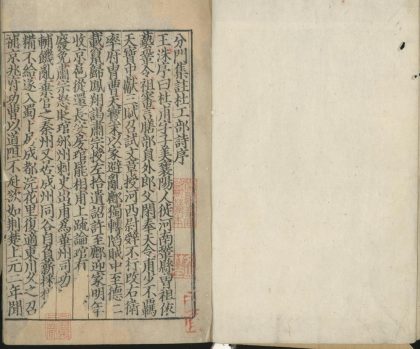 分門集註杜工部詩序
王洙序曰杜甫字子美襄陽人徙河南鞏縣曾祖依
藝鞏令祖審言膳部員外郎父閑奉天令甫少不羈
天寶中獻三賦召試文章授河西尉辭不行改右衛
率府冑曹天寶末以家避亂鄜獨轉陷賊中至德二
載竄歸鳳翔謁肅宗授左拾遺詔許至鄜迎家明年
收京扈從還長安房琯罷相甫上疏論琯有
廢免肅宗怒貶琯邠州刺史出甫為華州司功
輔饑亂棄官之秦州又居成州同谷自負薪採
糒不給遂入蜀卜居成都浣花里復適東川久之召
補京兆府功曹以道阻不赴欲如荊楚上元二年聞